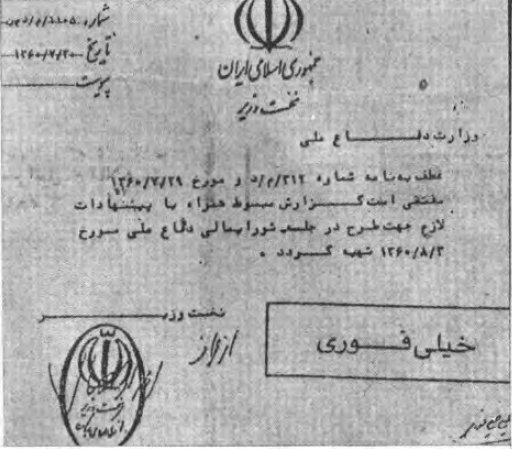 شماره
تاریخ ۱۳۶۰/۷/۳۰
پیوست
جمهوری اسلامی ایران
نخست وزیر
وزارت دفاع ملی
عطف بنامه شماره ۳۱۲/م/د و مورخ ۱۳۶۰/۷/۲۹
مقتضی است گزارش مبسوط همراه با پیشنهادات
لازم جهت طرح در جلسه شورایعالی دفاع ملی مورخ
۱۳۶۰/۸/۳ تهیه گردد .
نخست وزیر
از راز
خیلی فوری
نخست وزیر